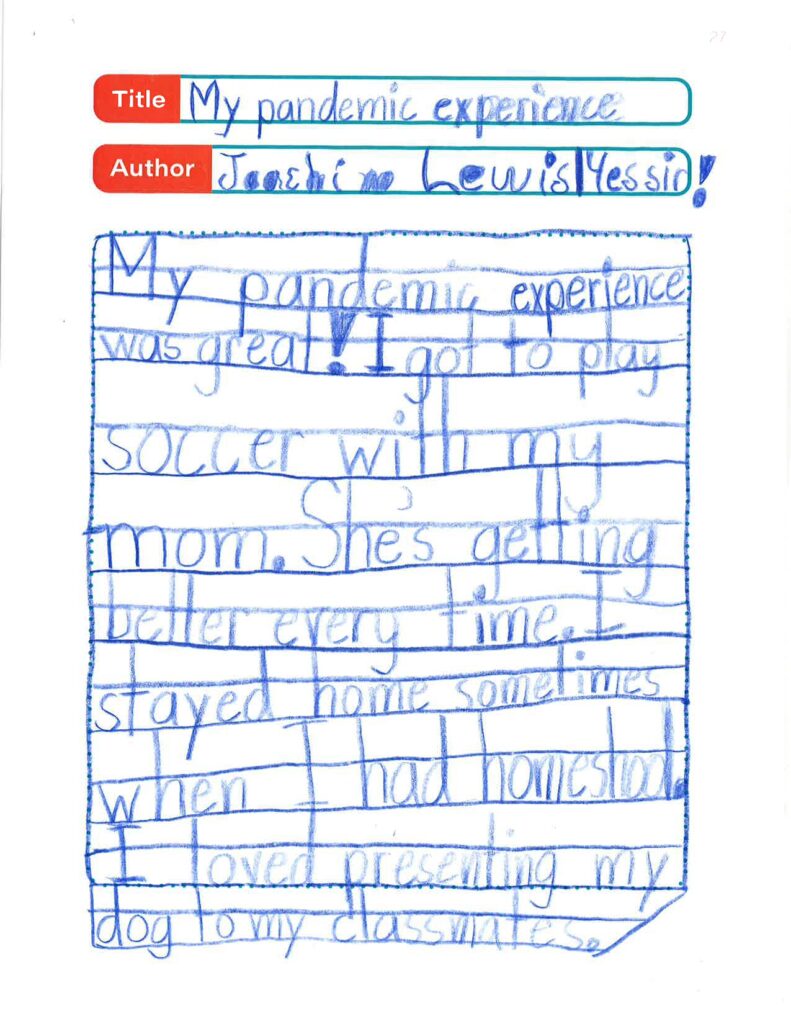 Title My pandemic experience
Author Joachim Lewis Yessir!
My pandemic experience
was great! I got to play
soccer with my
mom. She's getting
better every time. I
stayed home sometimes
when I had homeshool.
I loved presenting my
dog to my classmates.